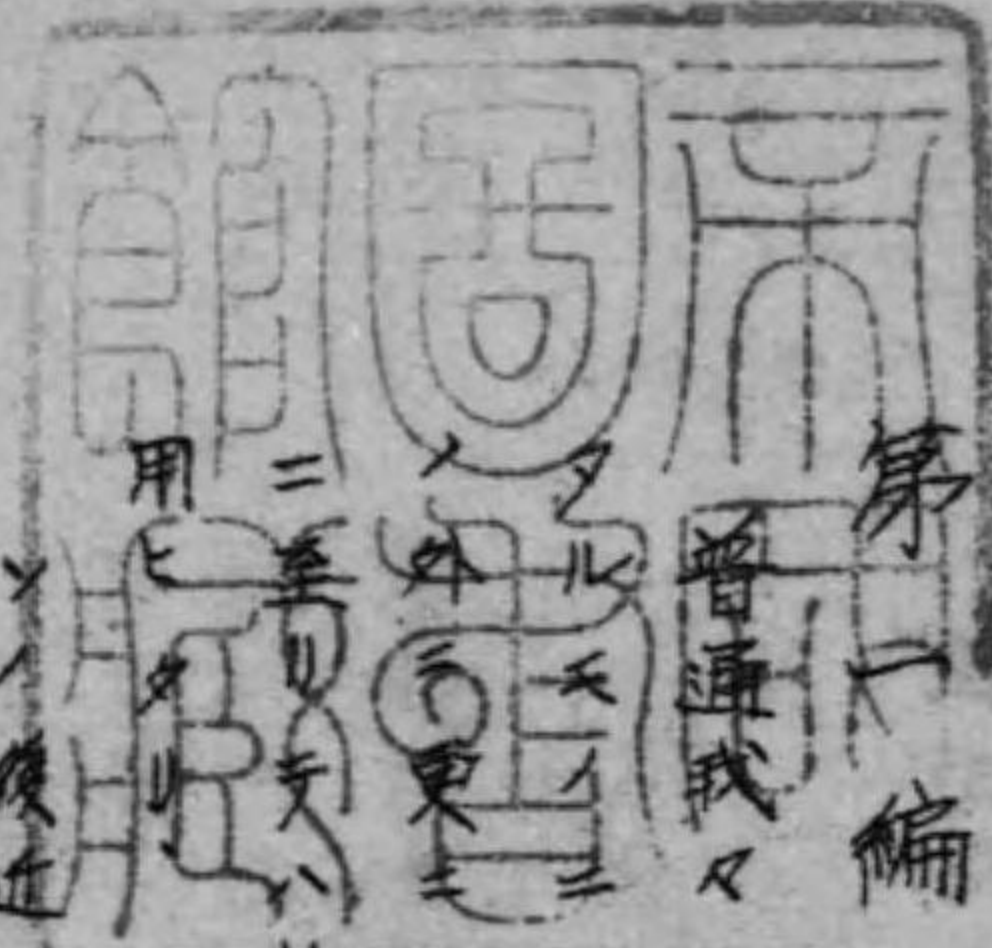 帝國
圖書
館藏
第一編
普通我々
タルモノニ
ノ外ニ更ニ
ニ至リテハ
用ヒタリ
ソノ後近